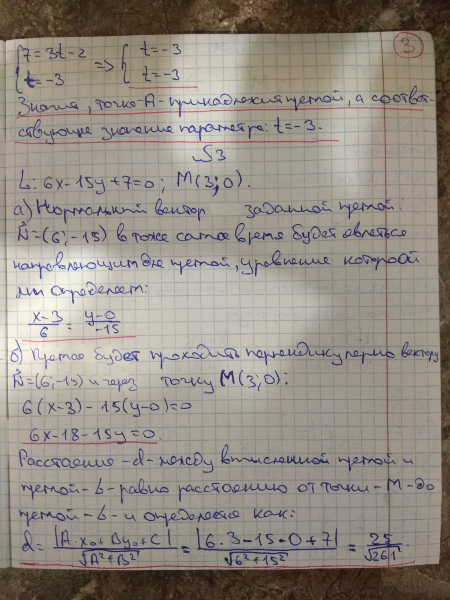 3
{ 7 = 3t - 2 => { t = -3
{ t = -3 { t = -3
Значит, точка - А - принадлежит прямой, а соответ-
ствующее значение параметра: t = -3.
№3
L: 6x - 15y + 7 = 0; M(3; 0).
а) Нормальный вектор заданной прямой:
N = (6; -15) в тоже самое время будет являться
направляющим для прямой, уравнение которой
мы определяем:
(x-3)/6 = (y-0)/-15
б) Прямая будет проходить перпендикулярно вектору
N = (6; -15) и через точку M(3; 0):
6(x-3) - 15(y-0) = 0
6x - 18 - 15y = 0
Расстояние - d - между вычисленной прямой и
прямой - L - равно расстоянию от точки - M - до
прямой - L - и определяется как:
d = |A·x₀ + By₀ + C| / √(A² + B²) = |6·3 - 15·0 + 7| / √(6² + 15²) = 25/√261.